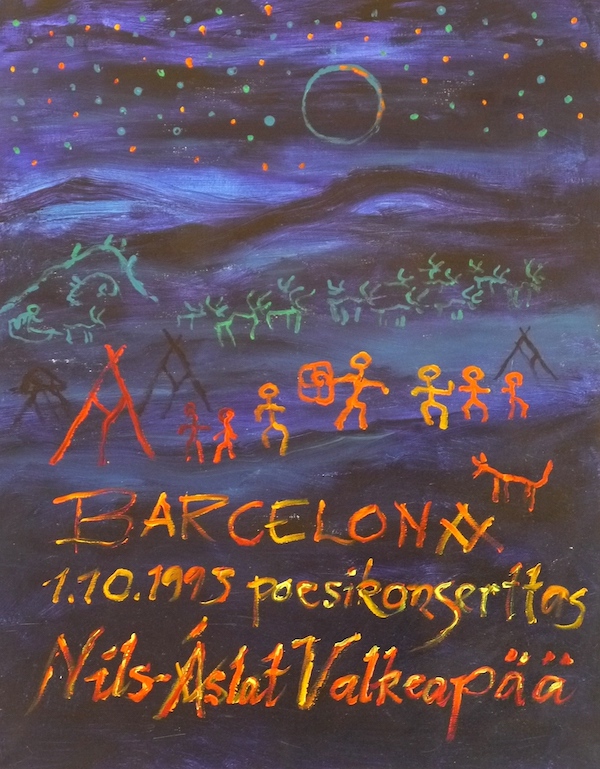 BARCELONA
1.10.1993 poesikonserttas
Nils-Áslat Valkeapää